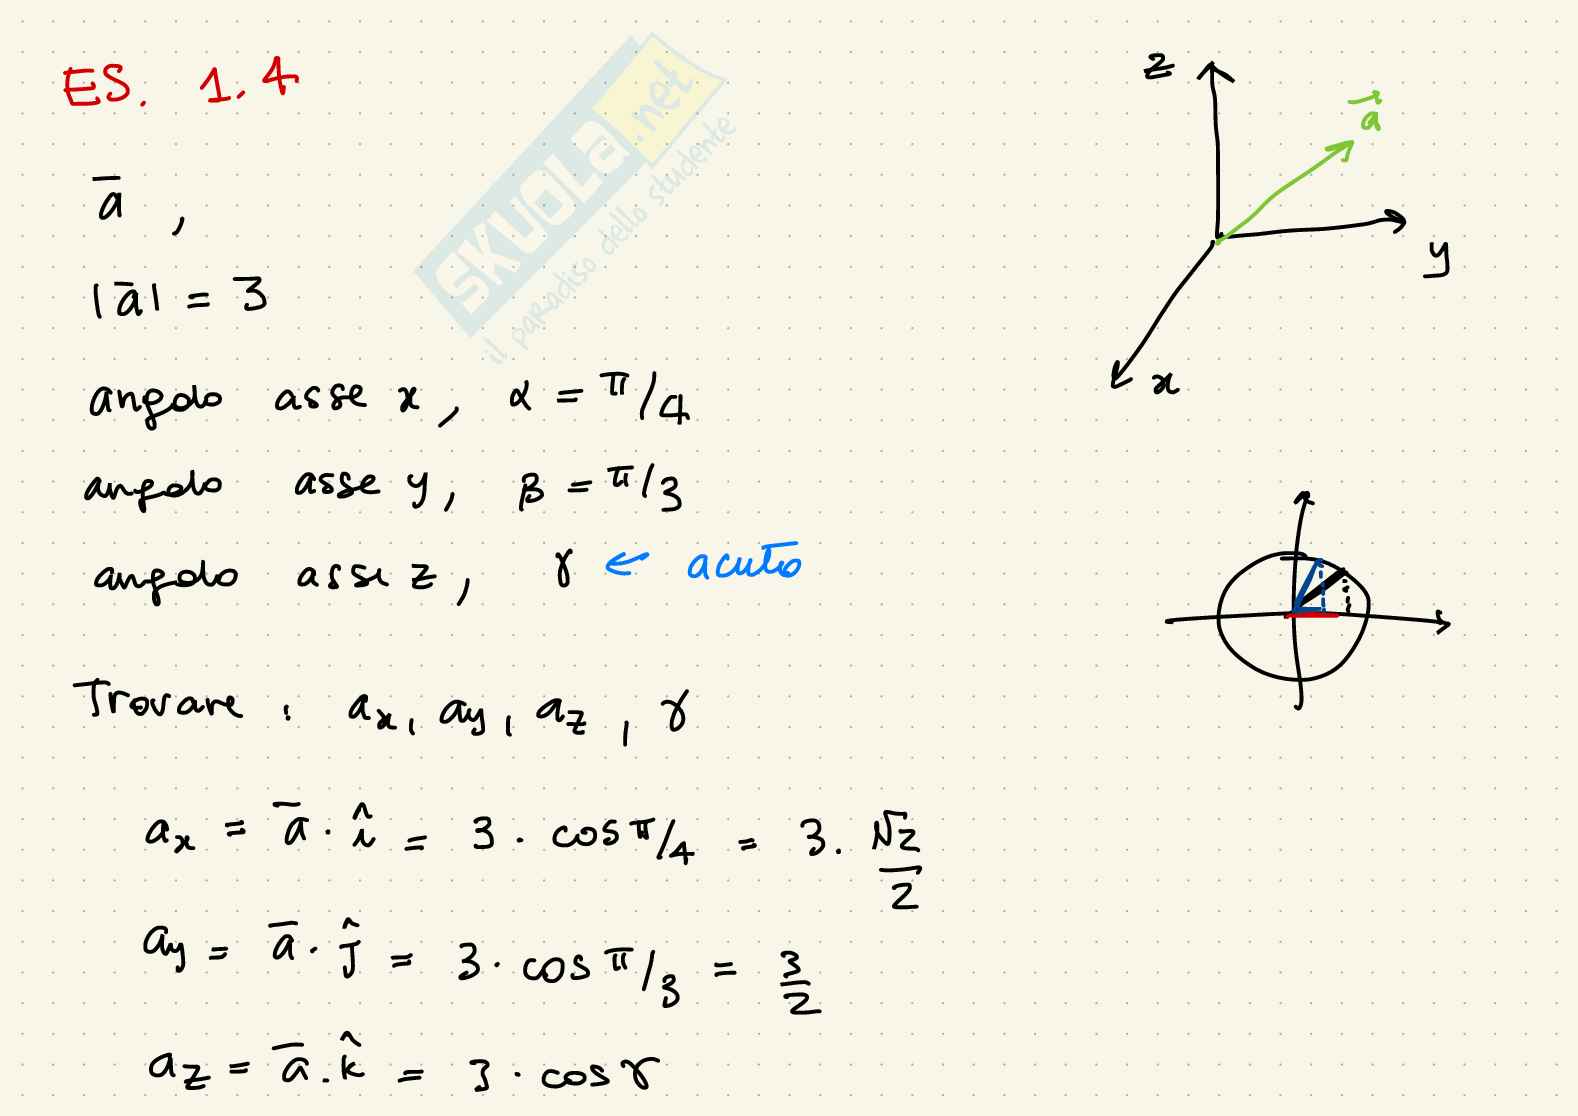 ES. 1.4
a̅ ,
|a̅| = 3
angolo asse x, α = π/4
angolo asse y, β = π/3
angolo asse z, γ ← acuto
Trovare : ax, ay, az, γ
ax = a̅ · î = 3 · cos π/4 = 3 · √2/2
ay = a̅ · ĵ = 3 · cos π/3 = 3/2
az = a̅ · k̂ = 3 · cos γ
z
a⃗
y
x
SKUOLA.net
il paradiso dello studente